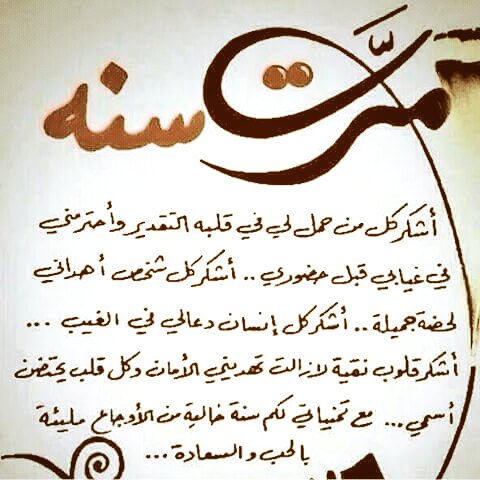 مرّت سنه
أشكر كل من حمل لي في قلبه التقدير وأحترمني
في غيابي قبل حضوري .. أشكر كل شخص أهداني
لحضة جميلة .. أشكر كل إنسان دعالي في الغيب ...
أشكر قلوب نقية لازالت تهديني الأمان وكل قلب يحتضن
أسمي ... مع تمنياتي لكم سنة خالية من الأوجاع مليئة
بالحب والسعادة ...